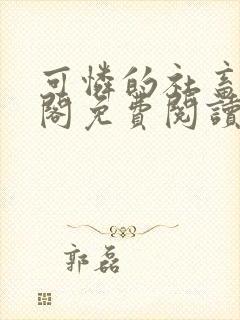 可憐的社畜
閣免費閱讀
郭磊